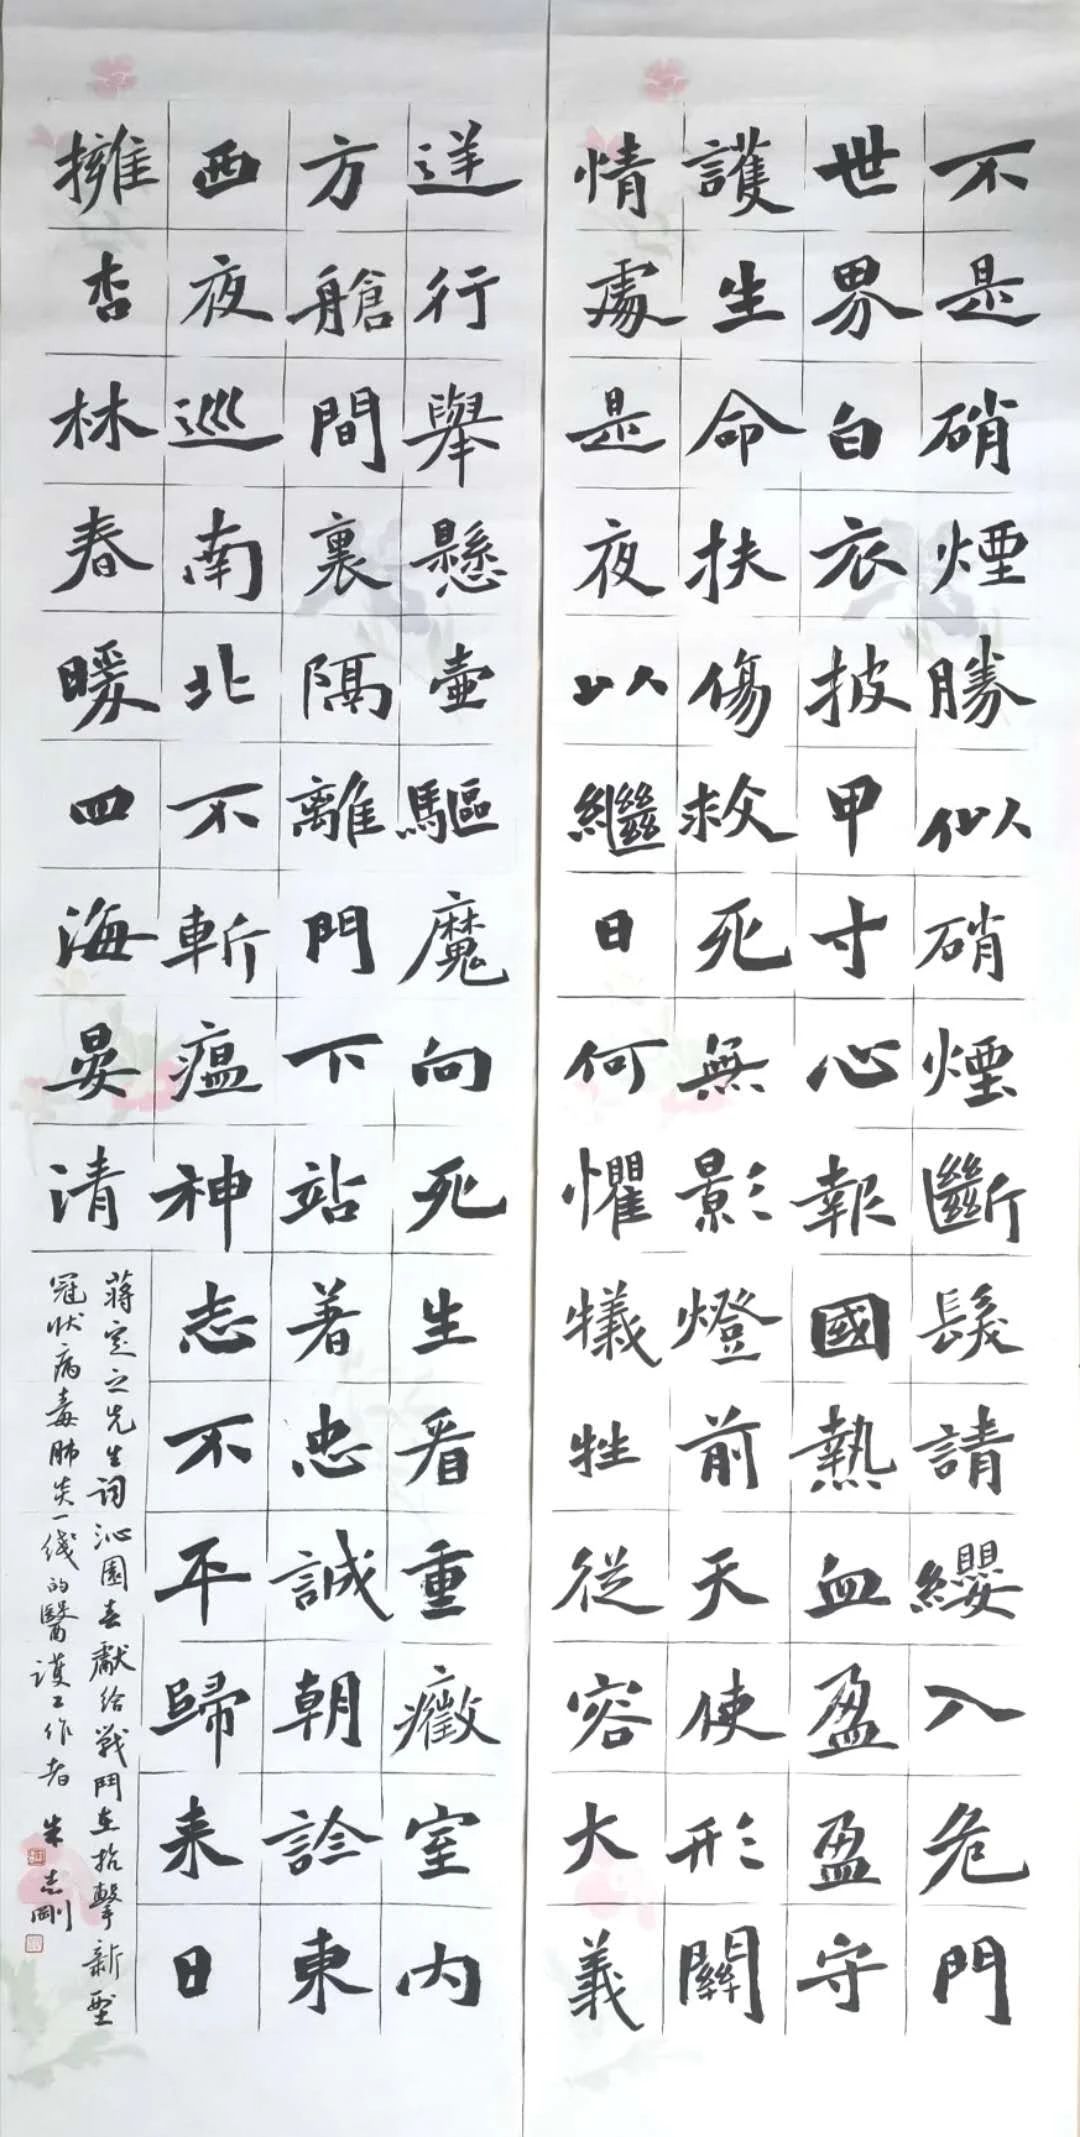 不是硝煙勝似硝煙斷髮請纓入危門
世界白衣披甲寸心報國熱血盈盈守
護生命扶傷救死無影燈前天使形關
情處是夜以繼日何懼犧牲從容大義
逆行舉懸壺驅魔向死生看重癥室內
方艙間裏隔離門下站著忠誠朝診東
西夜巡南北不斬瘟神志不平歸来日
擁杏林春暖四海晏清
蔣定之先生詞沁園春獻給戰鬥在抗擊新型
冠狀病毒肺炎一線的醫護工作者 朱志剛